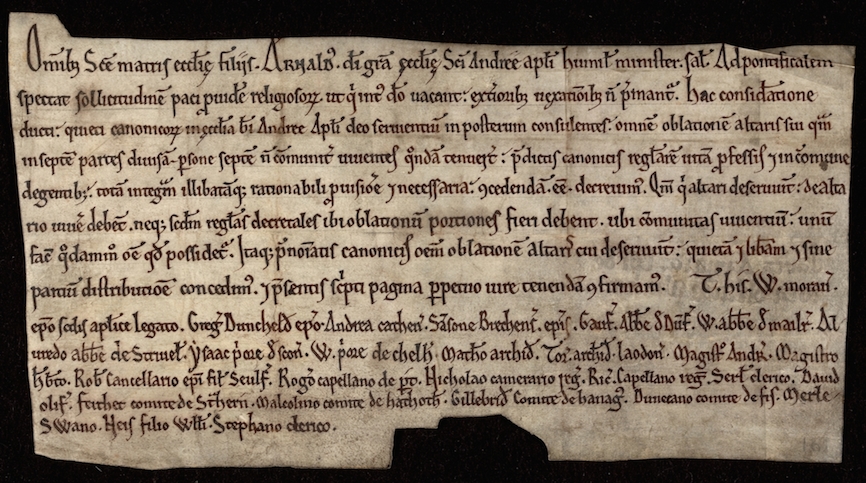 Omib; Sce matris ecclie filijs. Arnald'. di gra ecclie Sci Andree apli humil' minister. sal'. Ad pontificalem
spectat sollicitudine paci puide religiosor. ut q int' do vacant: ext'iorib; vexationib; n p'mant'. hac considatione
ducti: quieti canonicor in ecclia bi Andree Apli deo servientiu in posterum consulentes: omne oblatione altaris sui qm
in septe partes divisa psone septe n comunit' viventes qndam tenuert: pdictis canonicis reglare vita pfessis 7 in comune
degentib;. tota integm illibataq; rationabili puisioe 7 necessaria: 9cedenda ee decrevim'. Qm q altari deserviunt: de alta
rio vive debent. neq; scdm reglas decretales ibi oblationu portiones fieri debent. ubi comunitas viventiu: unu
fac qdam'o oe qd possidet'. Itaq; pnoiatis canonicis oem oblatione altaris cui deserviunt: quieta 7 libam 7 sine
partiu distributioe concedim'. 7 psentis sc'pti pagina ppetuo iure tenenda 9firmam'. T. his. W. moravi'.
epo sedis aplice legato. Greg' Duncheld' epo. Andrea cathen'. Samsone Brechen'. epis. Gauf'. Abbe d Duf'. W. abbe d mailr'. Al
vredo abbe de Strivel'. Ysaac p'ore d scon'. W. p'ore de . Matho archid'. Tor' archid' laodon'. Magistr' Andr'. Magistro
hb'to. Rob' Cancellario epi fil' Seulf'. Rog' capellano de . Nicholao camerario reg'. Ric' Capellano reg'. Serl' clerico. David
olif'. ferthet comite de St'hern'. Malcolmo comite de hathoth'. Gillebrid' Comite de hanag'. Dunecano comite de fif'. Merle
Swano. Heis filio Wll'i. Stephano clerico.